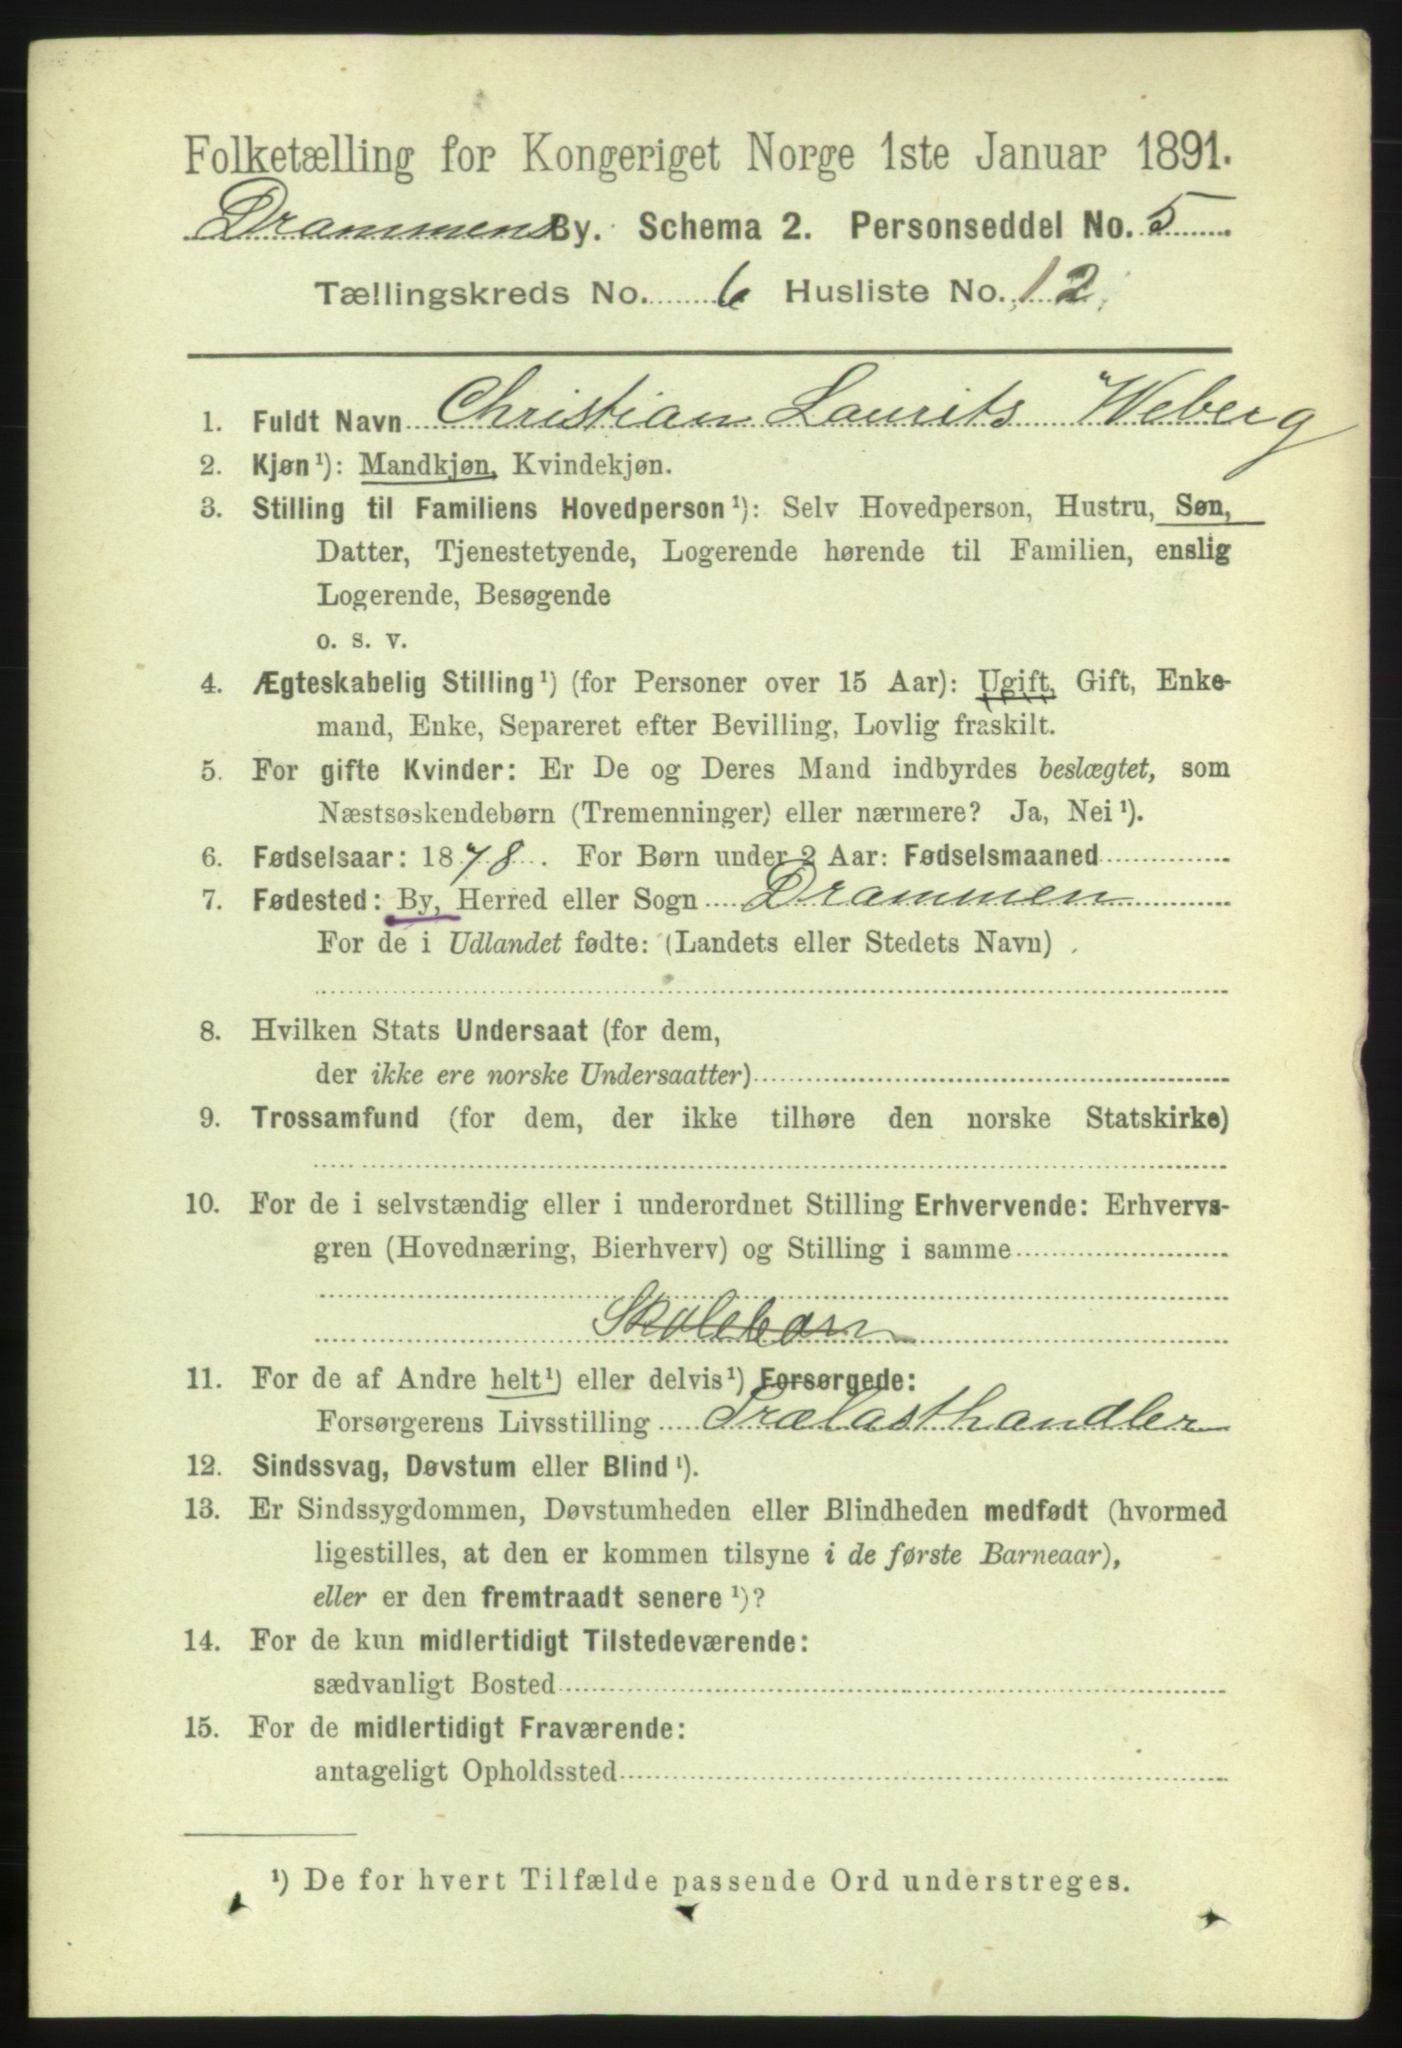 Folketælling for Kongeriget Norge 1ste Januar 1891.
Drammens By. Schema 2. Personseddel No. 5
Tællingskreds No. 6 Husliste No. 12.
1. Fuldt Navn Christian Laurits Weberg
2. Kjøn¹): Mandkjøn, Kvindekjøn.
3. Stilling til Familiens Hovedperson¹): Selv Hovedperson, Hustru, Søn,
Datter, Tjenestetyende, Logerende hørende til Familien, enslig
Logerende, Besøgende
o. s. v.
4. Ægteskabelig Stilling¹) (for Personer over 15 Aar): Ugift, Gift, Enke-
mand, Enke, Separeret efter Bevilling, Lovlig fraskilt.
5. For gifte Kvinder: Er De og Deres Mand indbyrdes beslægtet, som
Næstsøskendebørn (Tremenninger) eller nærmere? Ja, Nei¹).
6. Fødselsaar: 1878. For Børn under 2 Aar: Fødselsmaaned
7. Fødested: By, Herred eller Sogn Drammen
For de i Udlandet fødte: (Landets eller Stedets Navn)
8. Hvilken Stats Undersaat (for dem,
der ikke ere norske Undersaatter)
9. Trossamfund (for dem, der ikke tilhøre den norske Statskirke)
10. For de i selvstændig eller i underordnet Stilling Erhvervende: Erhvervs-
gren (Hovednæring, Bierhverv) og Stilling i samme
Skolebarn
11. For de af Andre helt¹) eller delvis¹) Forsørgede:
Forsørgerens Livsstilling Trælasthandler
12. Sindssvag, Døvstum eller Blind¹).
13. Er Sindssygdommen, Døvstumheden eller Blindheden medfødt (hvormed
ligestilles, at den er kommen tilsyne i de første Barneaar),
eller er den fremtraadt senere¹)?
14. For de kun midlertidigt Tilstedeværende:
sædvanligt Bosted
15. For de midlertidigt Fraværende:
antageligt Opholdssted
¹) De for hvert Tilfælde passende Ord understreges.